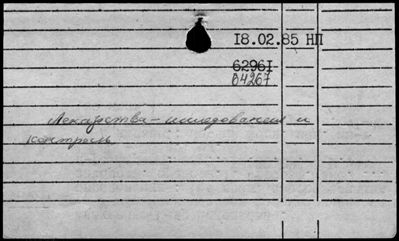 18.02.85 НП
62961
04267
Лекарства - исследования и
контроль